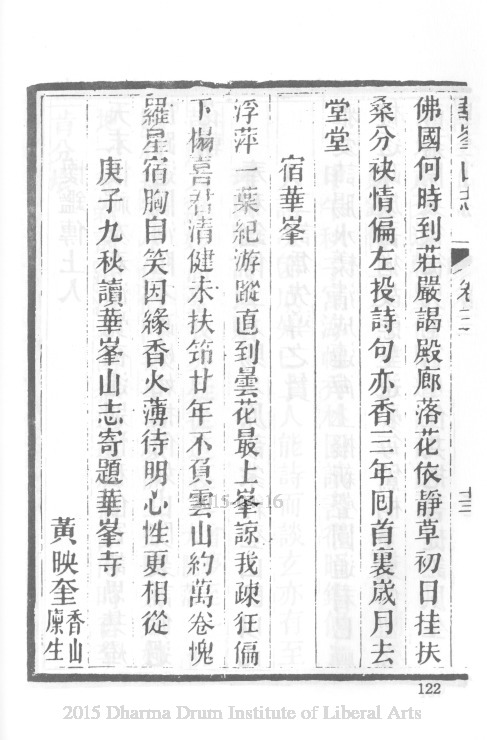 華峯山志
卷二
十三
佛國何時到莊嚴謁殿廊落花依靜草初日挂扶
桑分袂情偏左投詩句亦香三年囘首裏歲月去
堂堂
宿華峯
浮萍一葉紀游蹤直到曇花最上峯諒我疎狂偏
下榻喜君清健未扶筇廿年不負雲山約萬卷愧
羅星宿胸自笑因緣香火薄待明心性更相從
庚子九秋讀華峯山志寄題華峯寺
黃映奎 香山廩生
122
2015 Dharma Drum Institute of Liberal Arts